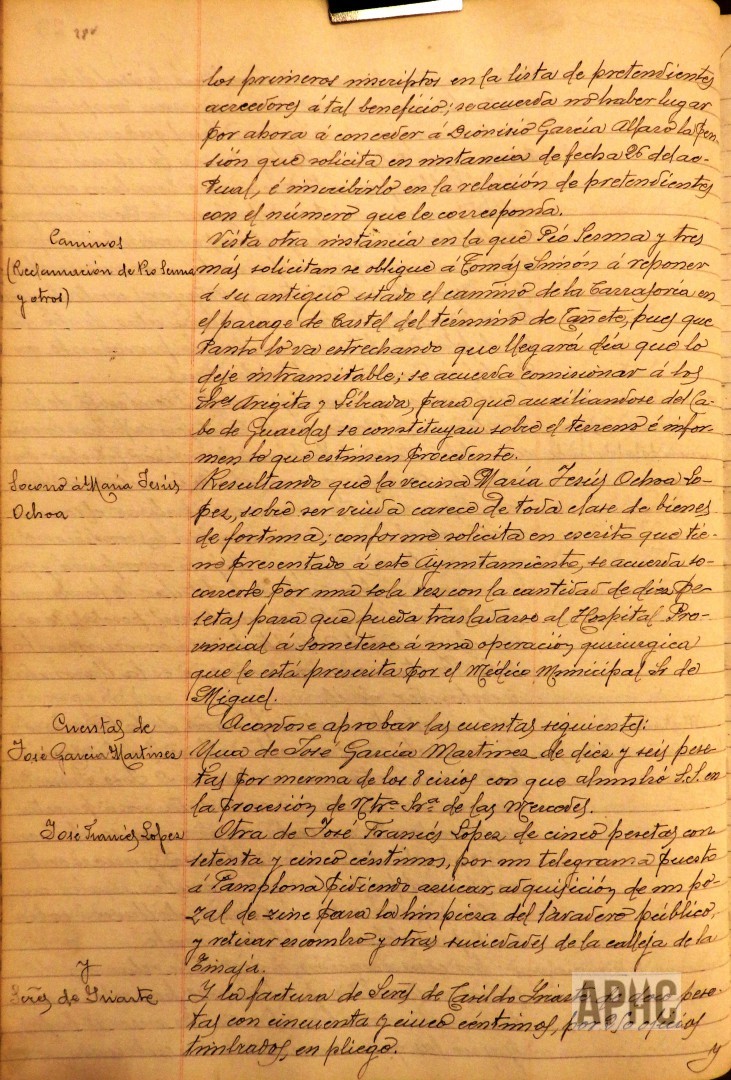 los primeros inscriptos en la lista de pretendientes
acreedores á tal beneficio; se acuerda no haber lugar
por ahora á conceder á Dionisio García Alfaro la pen-
sión que solicita en instancia de fecha 26 del ac-
tual, é inscribirlo en la relación de pretendientes
con el número que le corresponda.
Caminos
(Reclamación de Pio Sesma
y otros)
Vista otra instancia en la que Pío Sesma y tres
más solicitan se obligue á Tomás Simón á reponer
á su antiguo estado el camino de la en
el parage de Castel del término de Cañete, pues que
tanto lo va estrechando que llegará día que lo
deje intramitable; se acuerda comisionar á los
Sres Arigita y para que auxiliandose del Ca-
bo de Guardas se constituyan sobre el terreno é infor-
men lo que estimen procedente.
Socorro á María Jesús
Ochoa
Resultando que la vecina María Jesús Ochoa Lo-
pez, sobre ser viuda carece de toda clase de bienes
de fortuna; conforme solicita en escrito que tie-
ne presentado á este Ayuntamiento, se acuerda so-
correrle por una sola vez con la cantidad de diez pe-
setas para que pueda trasladarse al Hospital Pro-
vincial á someterse á una operación quirurgica
que le está prescrita por el Médico Municipal Sr de
Miguel.
Cuentas de
José García Martinez
Acordose aprobar las cuentas siguientes:
Una de José García Martinez de diez y seis pese-
tas por merma de los 8 cirios con que alumbró S.S. en
la procesión de Ntra Sra de las Mercedes.
José Francés Lopez
Otra de José Francés Lopez de cinco pesetas con
setenta y cinco céntimos, por un telegrama puesto
á Pamplona pidiendo azucar, adquisición de un po-
zal de zinc para la limpieza del lavadero público,
y retirar escombro y otras suciedades de la calleja de la
Tinaja.
Y
Señes de Iriarte
Y la factura de Señes de Casildo Iriarte de doce pese-
tas con cincuenta y cinco céntimos, por 250 oficios
timbrados, en pliego.
y
APHC